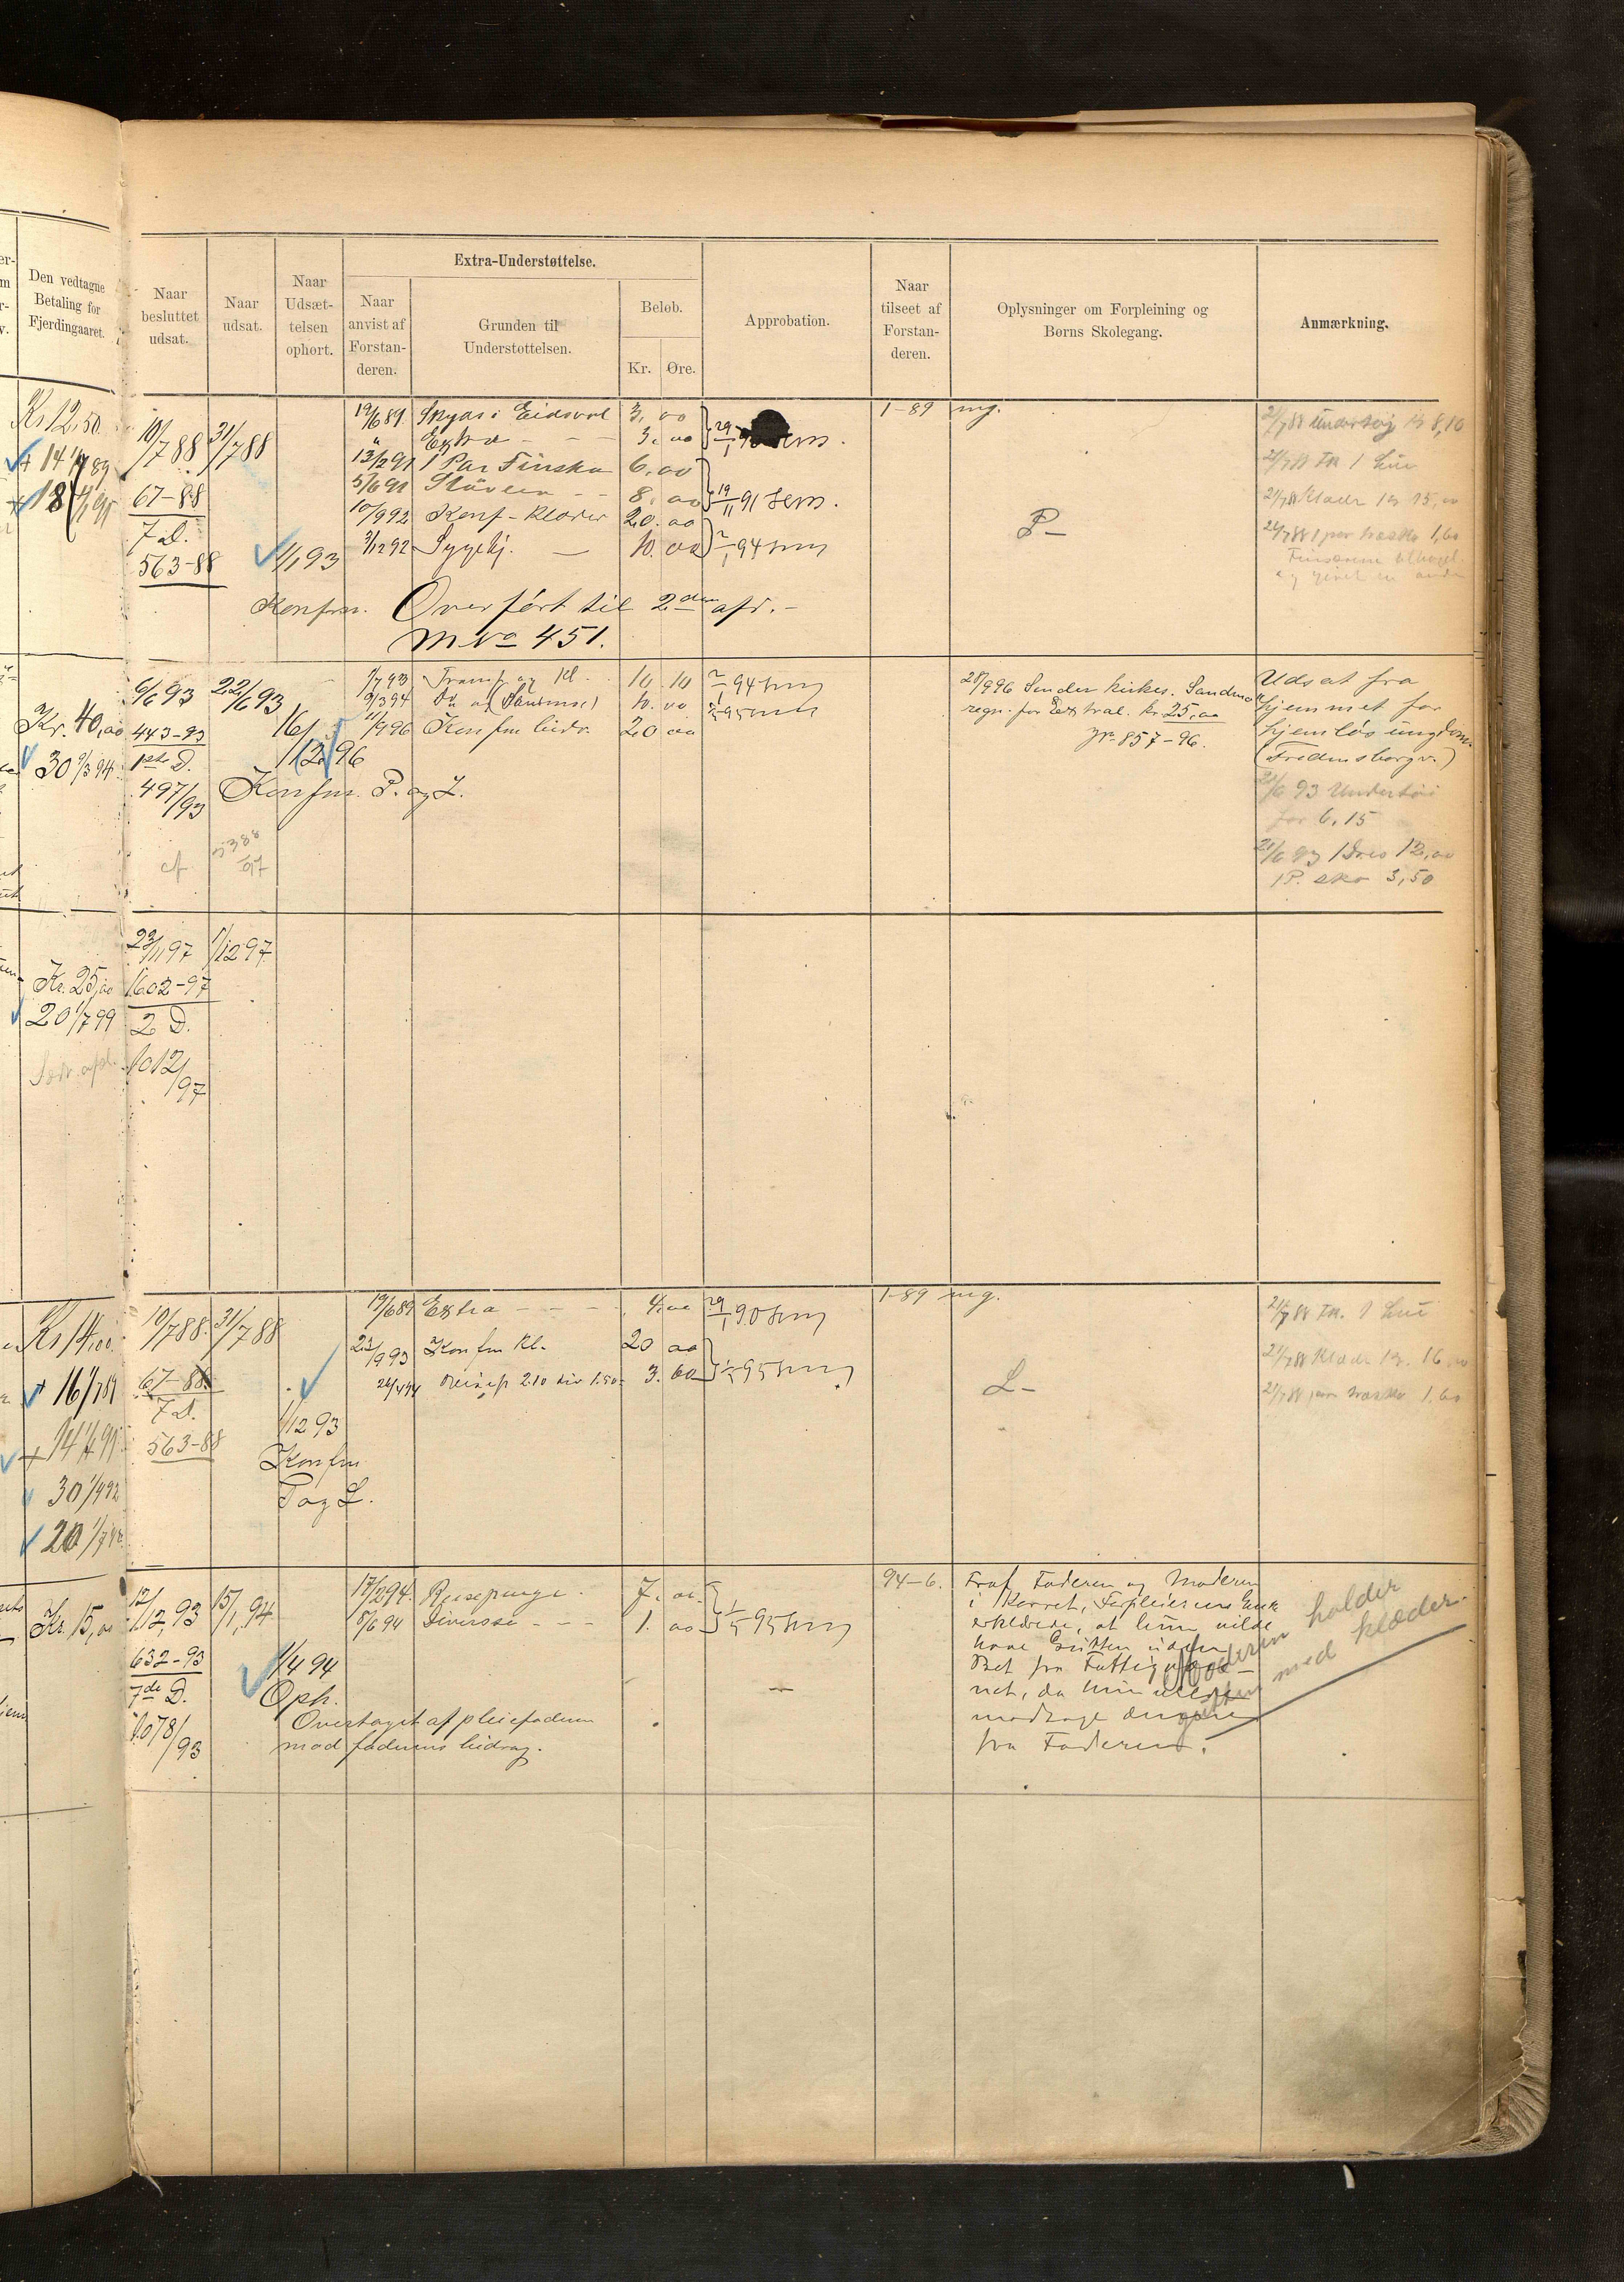 Den vedtagne
Betaling for
Fjerdingaaret.
Naar
besluttet
udsat.
Naar
udsat.
Naar
Udsæt-
telsen
ophørt.
Extra-Understøttelse.
Naar
anvist af
Forstan-
deren.
Grunden til
Understøttelsen.
Beløb.
Kr. Øre.
Approbation.
Naar
tilseet af
Forstan-
deren.
Oplysninger om Forpleining og
Børns Skolegang.
Anmærkning.
Kr 12,50
+ 14 1/7 89
+ 18
10/7 88 31/7 88
67-88
7 D.
563-88
1/1 93
19/6 89 Skyds i Eidsvol 3, 00
" Extra - - - 3. 00
13/2 91 1 Par Finsko 6, 00
5/6 91 Støvler - - 8. 00
10/9 92 Konf-klæder 20. 00
3/12 92 Sygehj. — 10. 00
29/1 90
19/11 91
2/1 94
1-89 mg.
P-
21/7 88 Undertøj Kr 8,10
21/7 88 1 Lue
21/7 88 Klæder Kr 15,00
21/7 88 1 par træsko 1,60
Konfm. Overført til 2den afd.-
M No 451.
Kr. 40,00
30 9/3 94
6/6 93 22/6 93
443-93
1ste D.
497/93
16/12 96
Konfm. P. og L.
cf. 97
1/7 93 Transp og Kl. 10. 10
9/3 94 10. 00
11/9 96 Konfm bidr. 20 00
2/1 94
1/5 95
28/9 96 Sender kirkes.
regn. for Extraal. kr. 25,00
jr. 857-96.
Udsat fra
hjemmet for
hjemløs ungdom.
(Fredensborgv.)
21/6 93 Undertøi
for 6,15
21/6 93 1 Dres 12,00
1 P. sko 3,50
Kr. 25,00
20 1/7 99
23/11 97 1/12 97
1602-97
2 D.
1012/97
Kr 14,00
+ 16 1/7 89
+ 14
30 1/4 92
20
10/7 88. 31/7 88
67-88
7 D.
563-88
1/12 93
Konfm
P og L.
19/6 89 Extra - - - 4. 00
23/9 93 Konfm Kl. 20 00
Reisep 2.10 div 1.50. 3. 60
29/1 90
1/5 95
1-89 mg.
L-
21/7 88 1 Lue
21/7 88 Klæder Kr. 16,00
21/7 88 par træsko 1,60
Kr. 15,00
12/12 93 15/1 94
632-93
7de D.
1078/93
1/4 94
Oph.
Overtaget af pleiefaderen
mod faderens bidrag.
17/2 94. Reisepenge. 7. 00
8/6 94 Diverse - - - 1. 00
1/5 95
94-6.
Traf Faderen og Moderen
erklærede, at hun vilde
have Gutten uden
Bet fra Fattigvæse-
net, da hun vilde
modtage
fra Faderen.
Moderen holder
gutten med klæder.